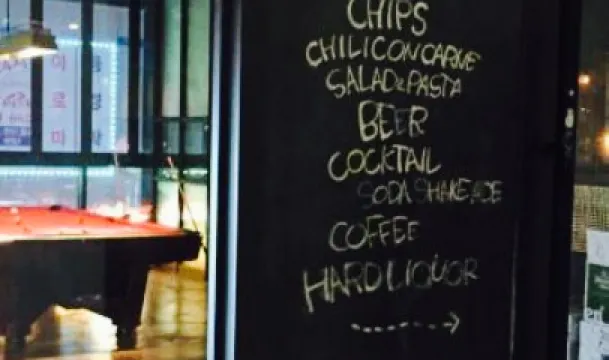 CHIPS
CHILICONCARNE
SALAD&PASTA
BEER
COCKTAIL
SODA SHAKE ADE
COFFEE
HARD LIQUOR
미
로
미